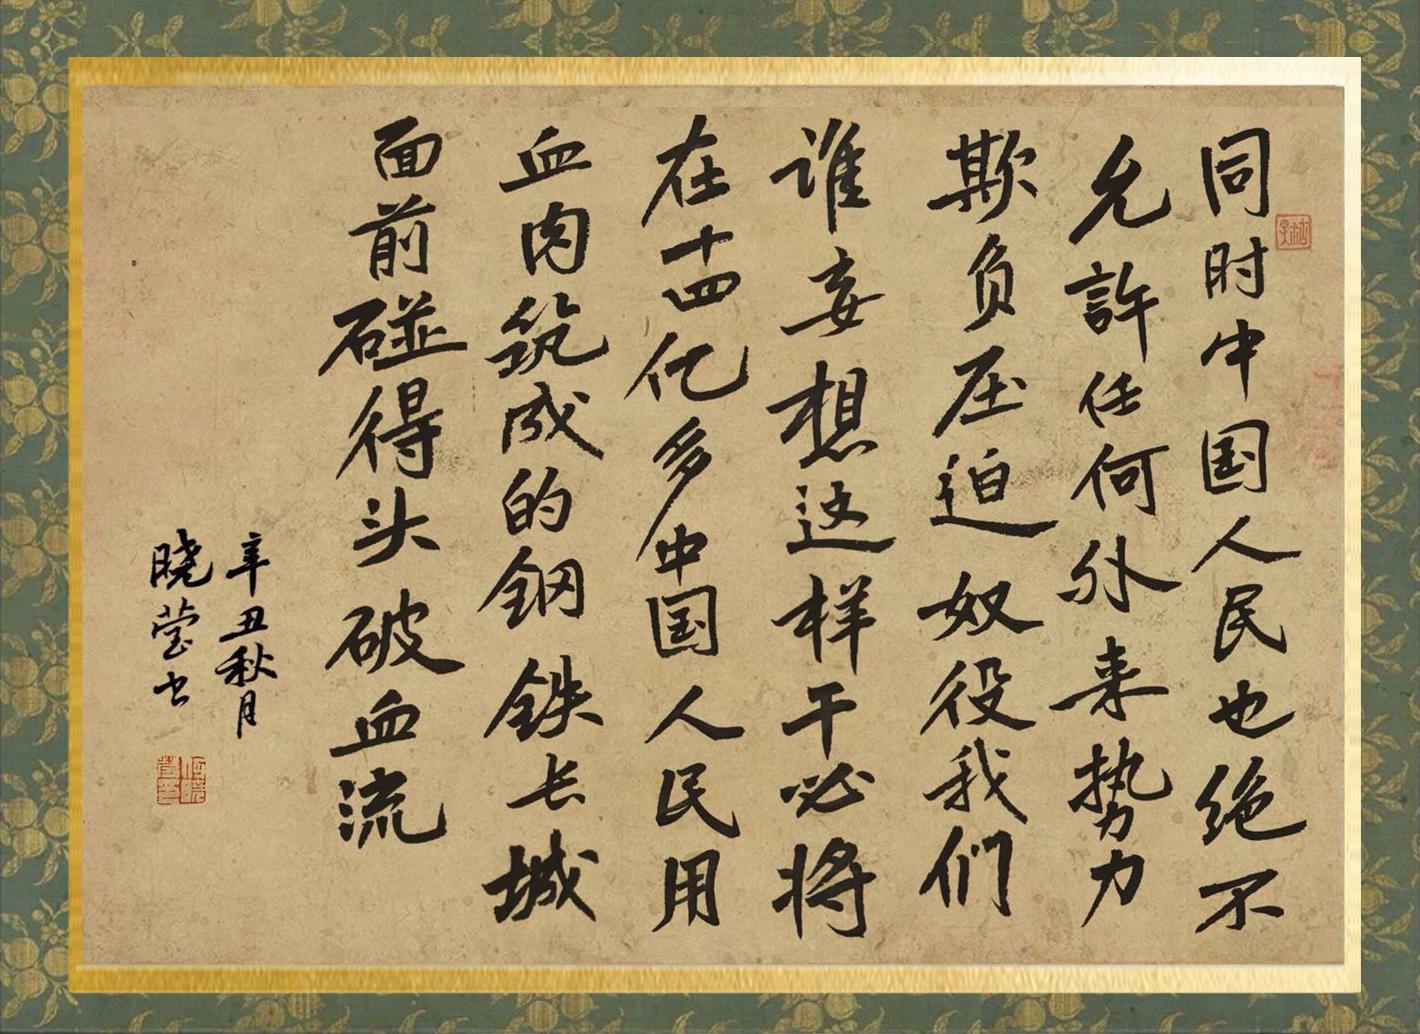 同时中国人民也绝不
允許任何外来势力
欺负压迫奴役我们
谁妄想这样干必将
在十四亿多中国人民用
血肉筑成的钢铁长城
面前碰得头破血流
辛丑秋月
晓莹书